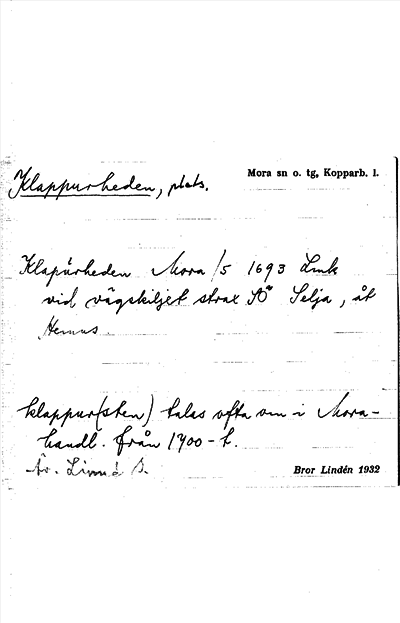 Klappurheden, plats.
Mora sn o. tg, Kopparb. l.
Klapurheden Mora /5 1693 Lmk
vid vägskiljet strax SÖ Selja, åt
Hemus
klappur(sten) talas ofta om i Mora-
handl. från 1700-t.
Bror Lindén 1932